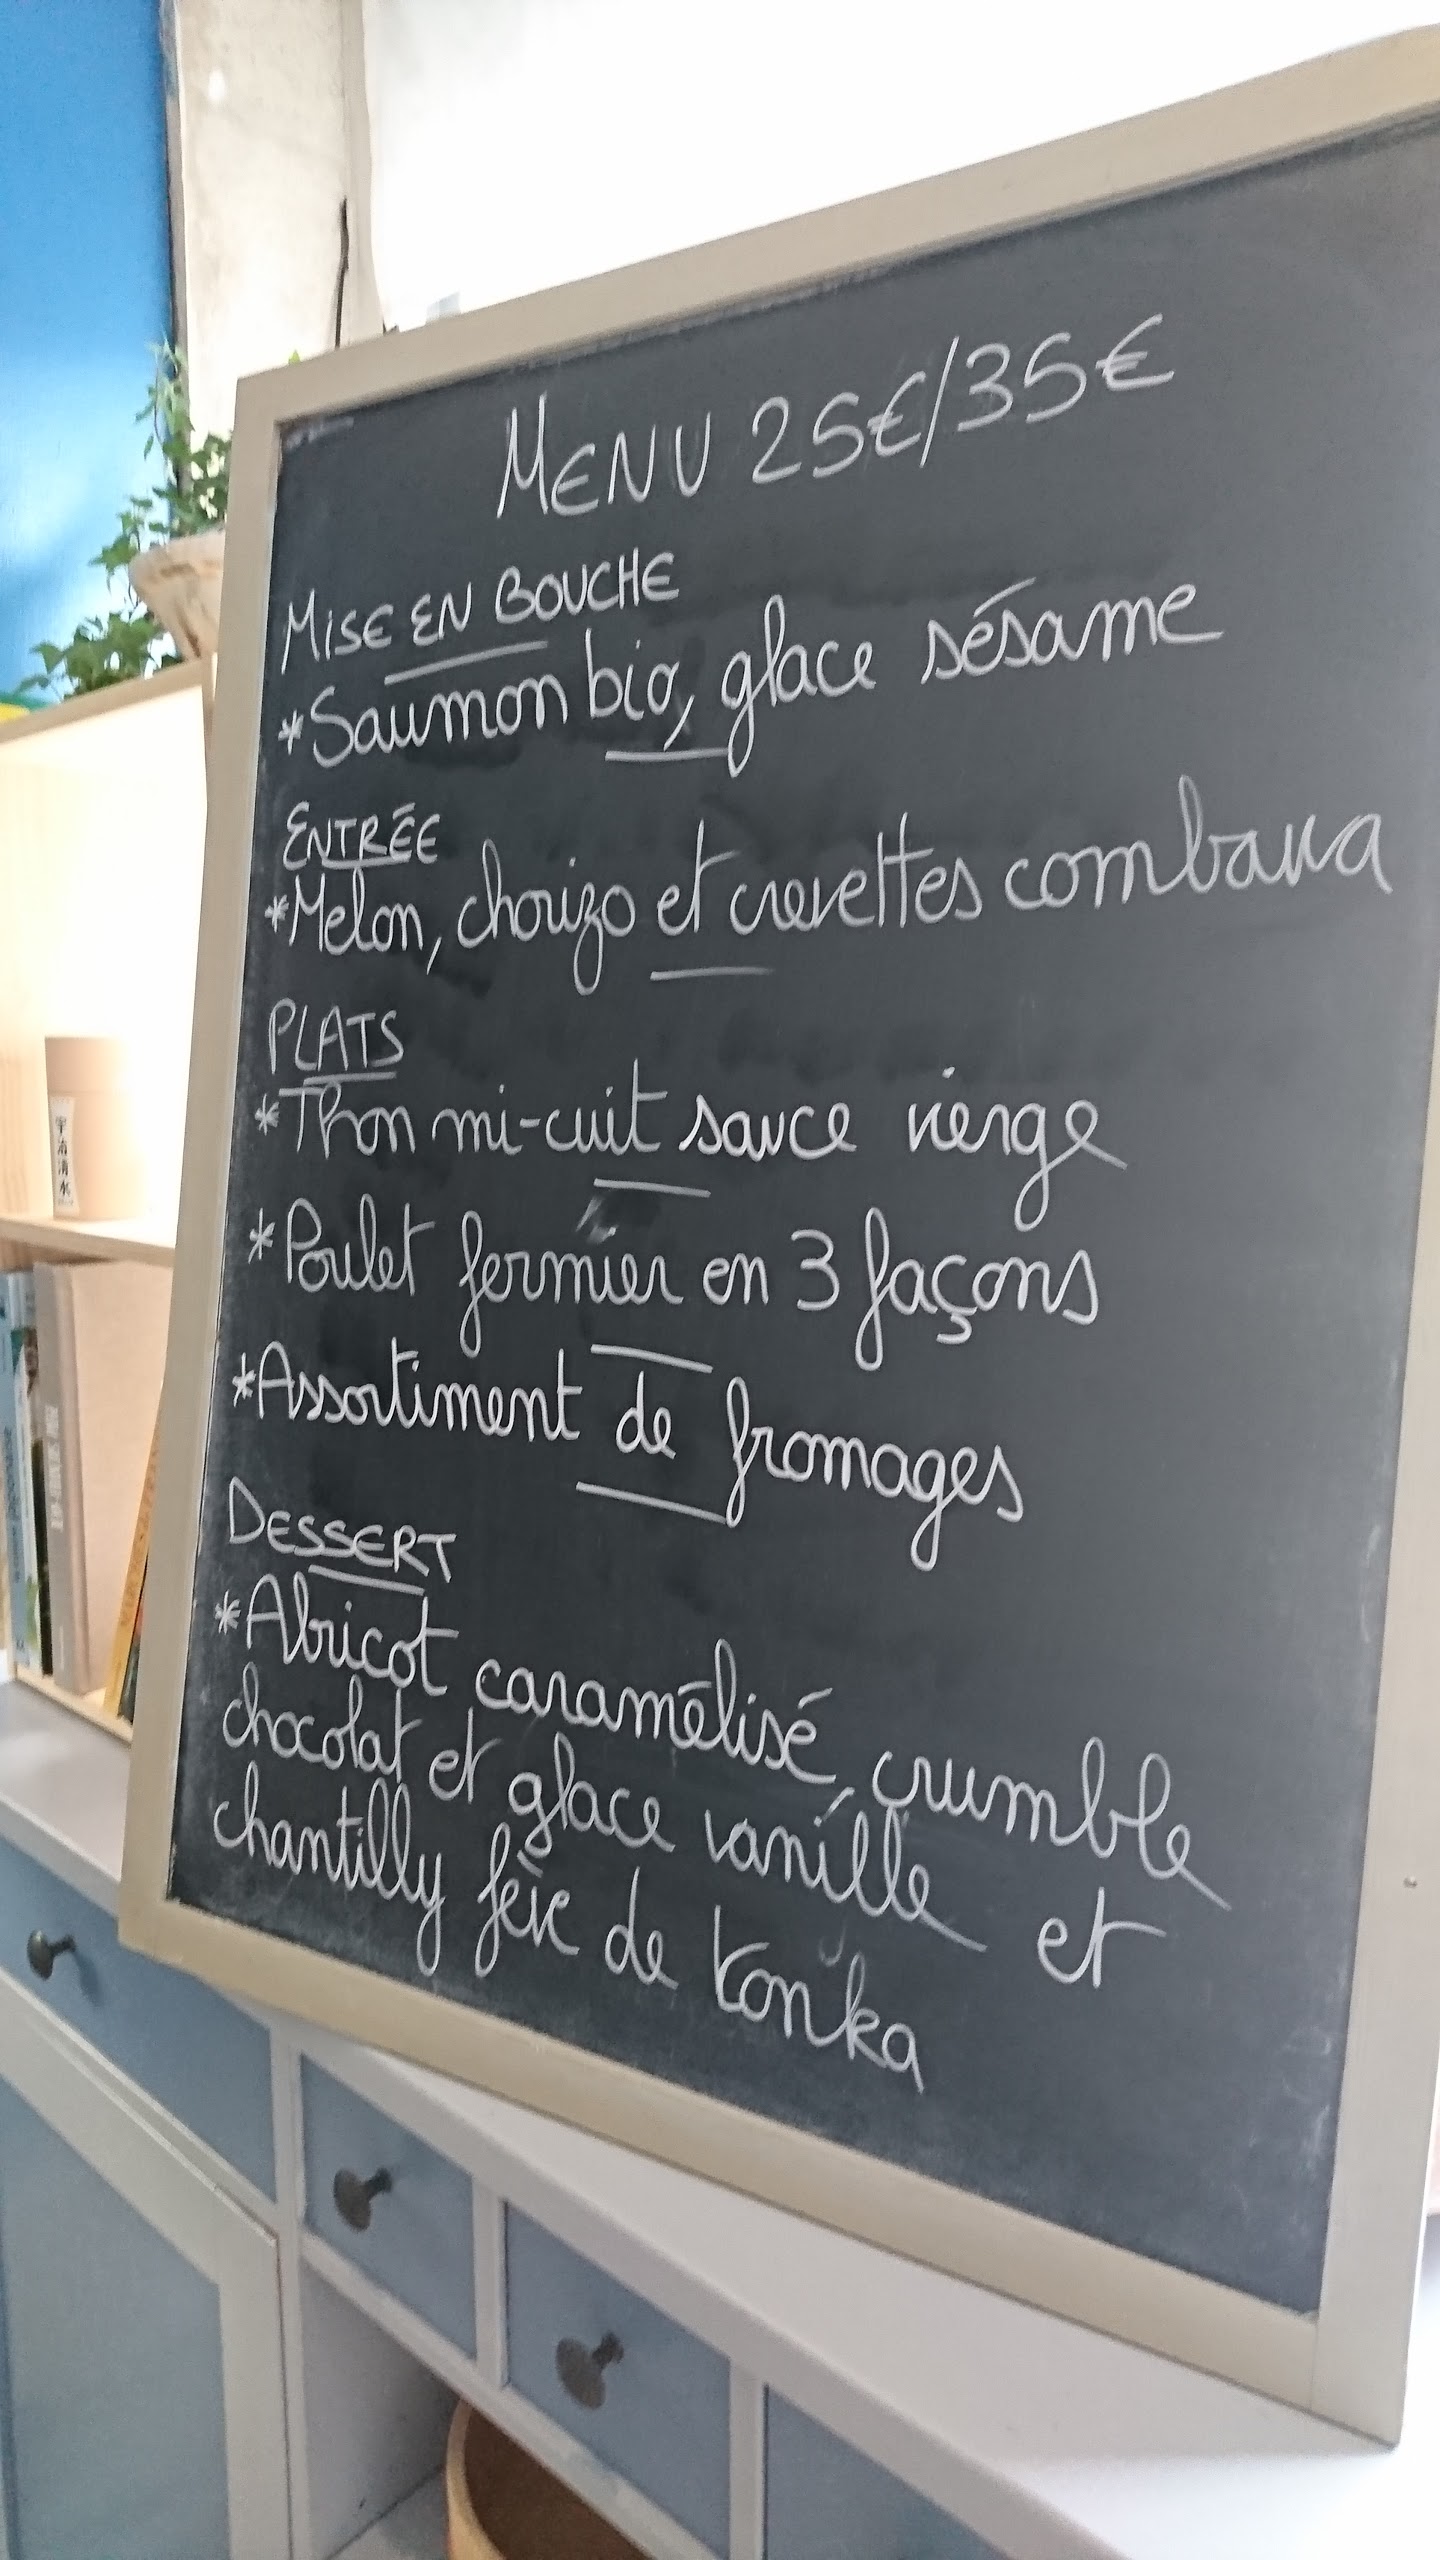 MENU 25€/35€
MISE EN BOUCHE
*Saumon bio, glace sésame
ENTRÉE
*Melon, chorizo et crevettes combava
PLATS
*Thon mi-cuit sauce vierge
*Poulet fermier en 3 façons
*Assortiment de fromages
DESSERT
*Abricot caramélisé, crumble
chocolat et glace vanille et
chantilly fève de tonka
宇治清水